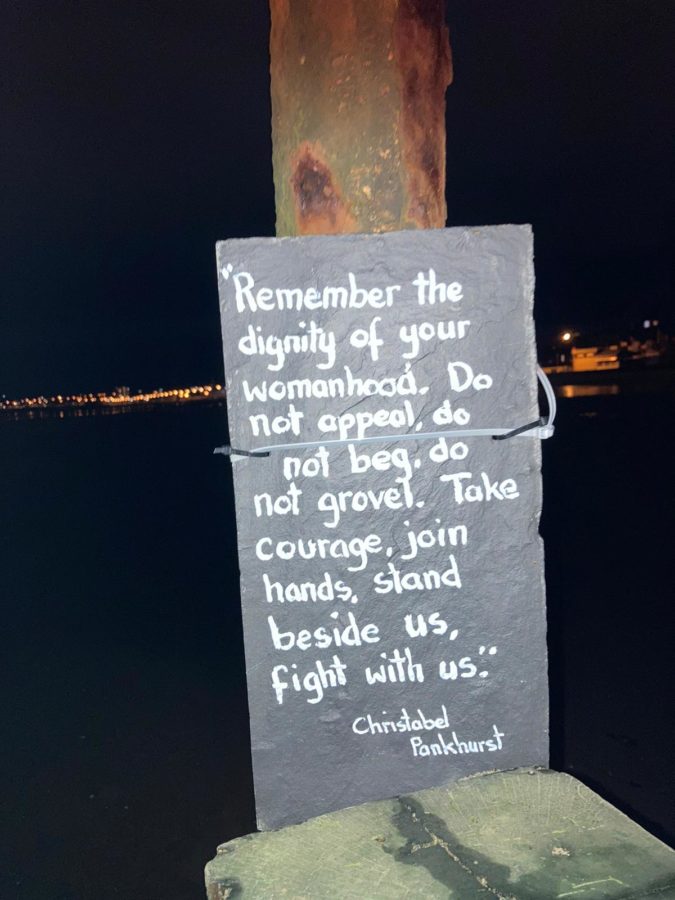 "Remember the
dignity of your
womanhood. Do
not appeal, do
not beg, do
not grovel. Take
courage, join
hands, stand
beside us,
fight with us."
Christabel
Pankhurst